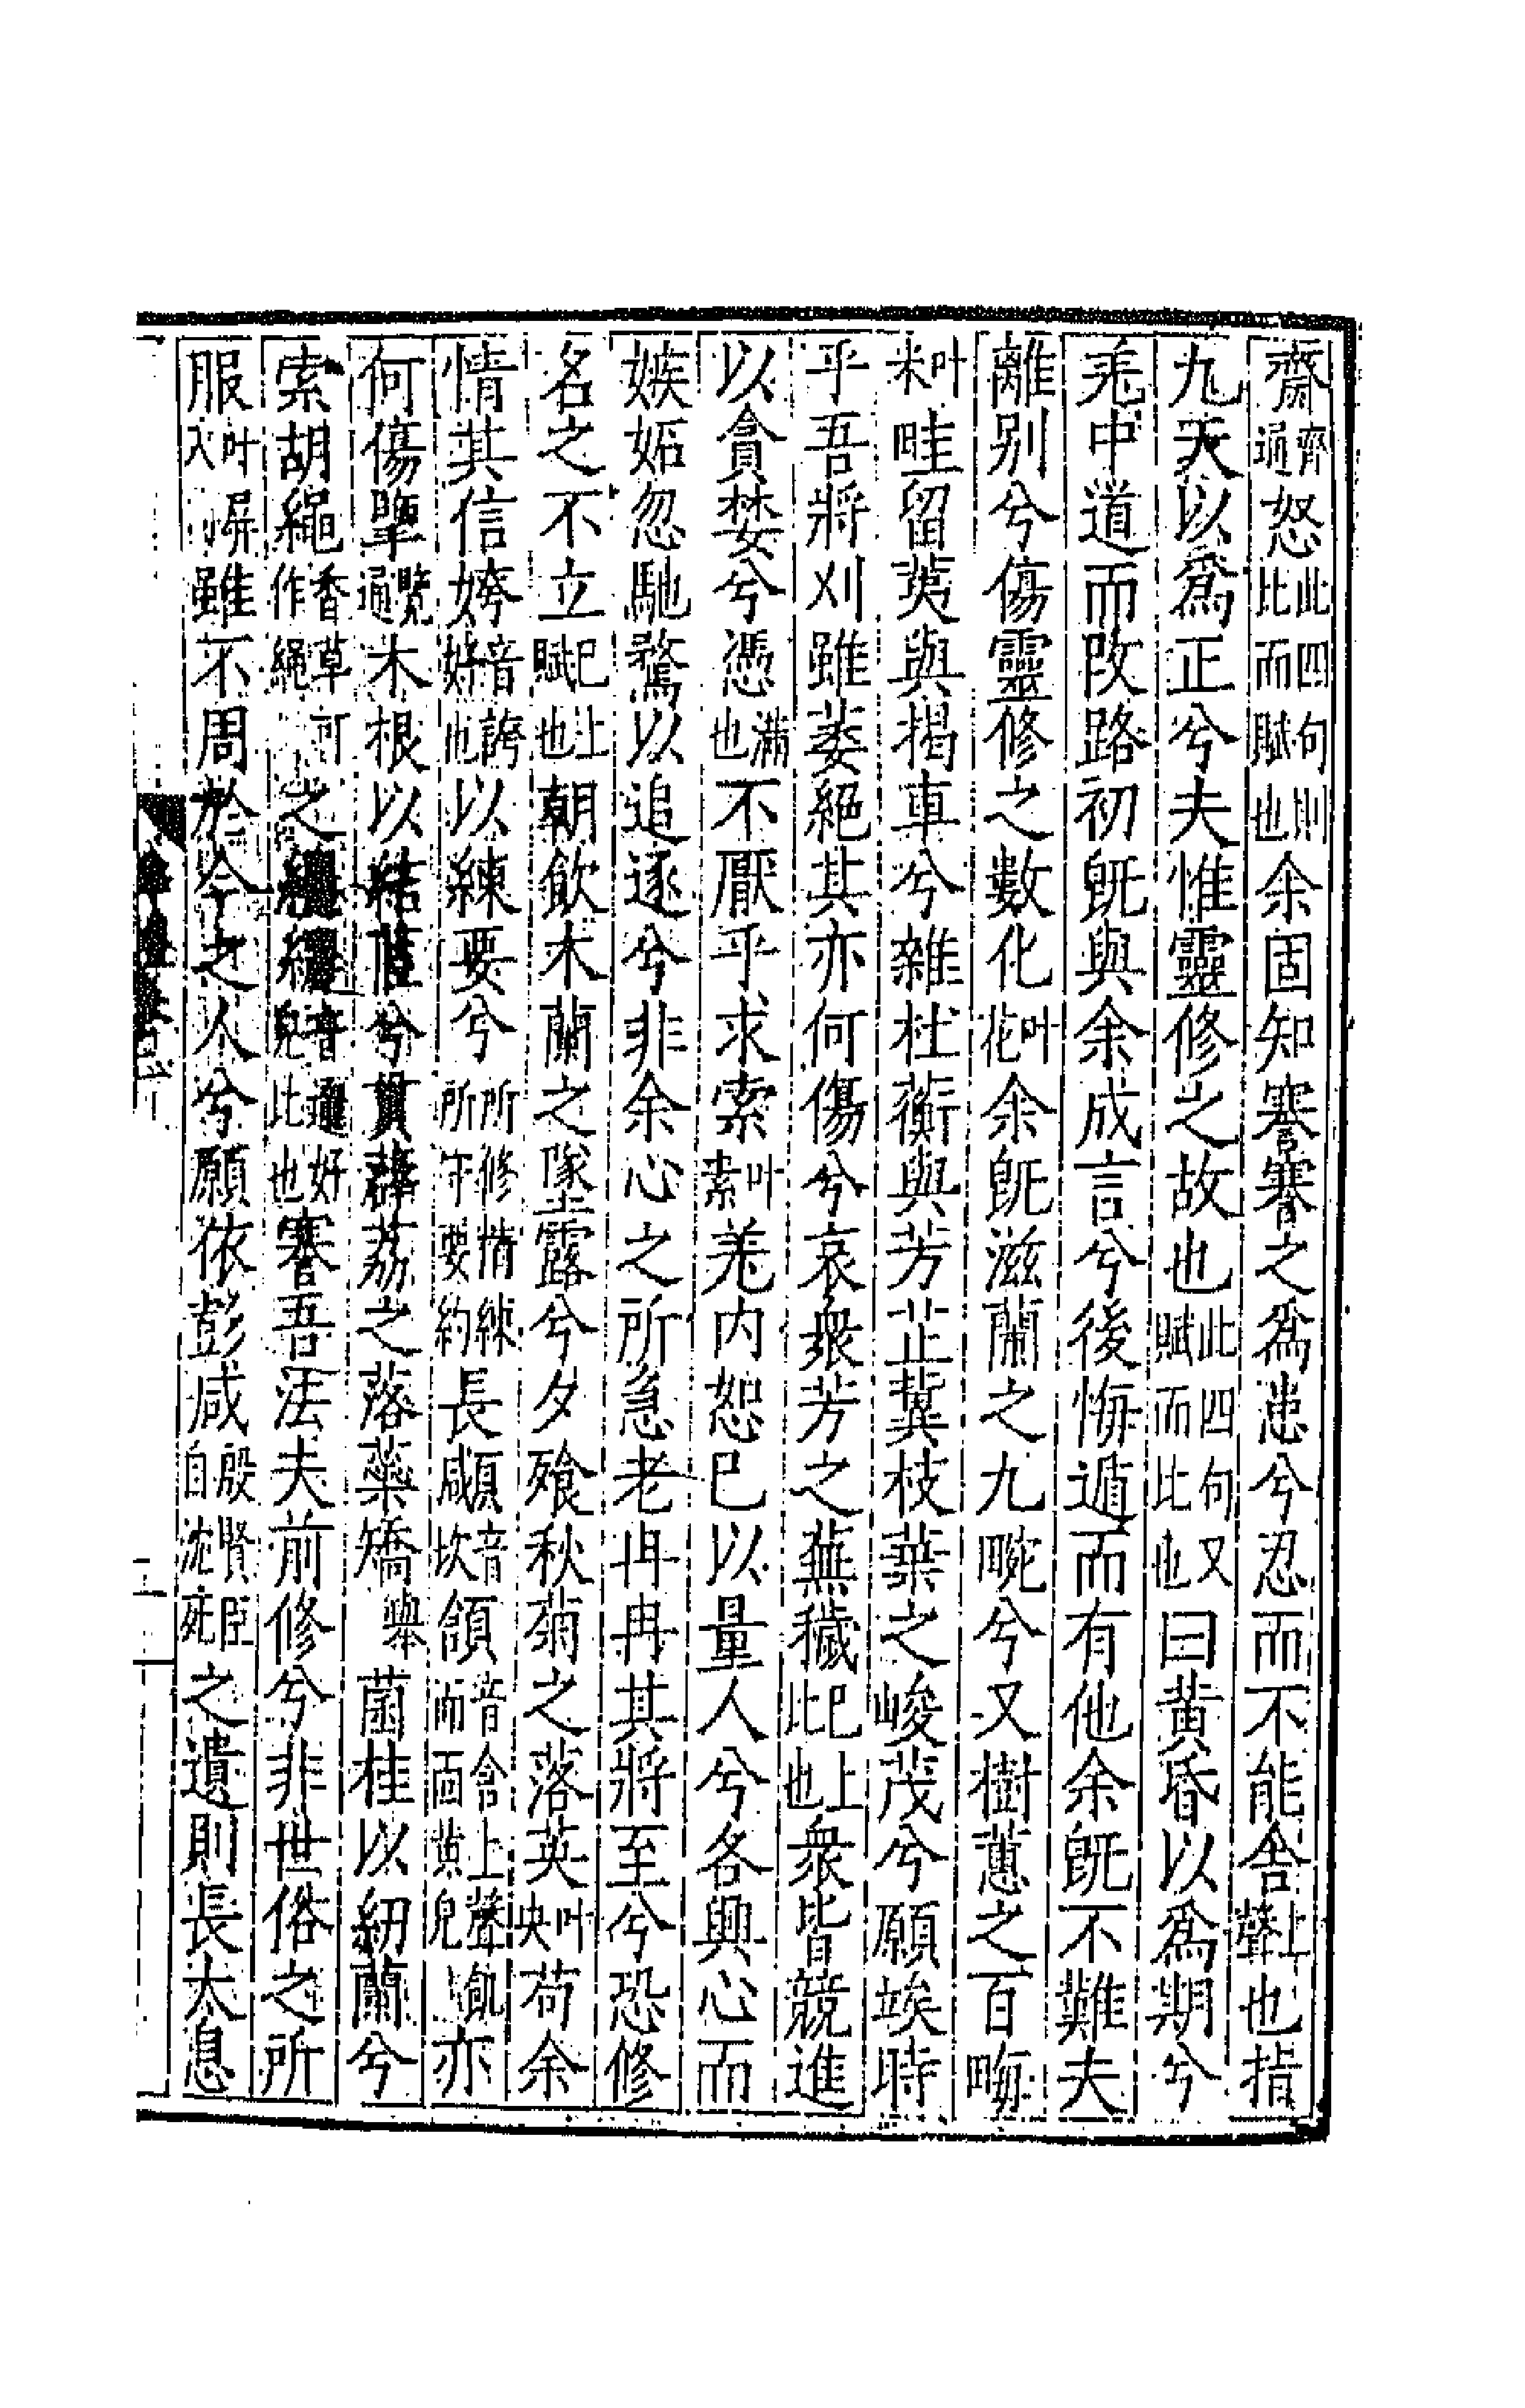 齋齊通怒此四句則比而賦也余固知謇謇之爲患兮忍而不能舍上聲也指
九天以爲正兮夫惟靈修之故也此四句又賦而比也曰黃昏以爲期兮
羌中道而改路初旣與余成言兮後悔遁而有他余旣不難夫
離别兮傷靈修之數化叶花余旣滋蘭之九畹兮又樹蕙之百畮
叶米畦留荑與揭車兮雜杜蘅與芳芷冀枝葉之峻茂兮願竢時
乎吾將刈雖萎絕其亦何傷兮哀衆芳之蕪穢巳上比也衆皆競進
以貪婪兮憑滿也不厭乎求索叶素羌内恕巳以量人兮各興心而
嫉妬忽馳騖以追逐兮非余心之所急老冉冉其將至兮恐修
名之不立巳上賦也朝飲木蘭之墜露兮夕飱秋菊之落英叶央苟余
情其信姱音誇好也以練要兮所修精練所守要約長顑音坎頷音含上聲顑頷面黄皃亦
何傷擥覽通木根以結茝兮貫薜荔之落蘂矯舉菌桂以紉蘭兮
索胡繩香草可作繩之纚纚音邐好皃比也謇吾法夫前修兮非世俗之所
服叶屏入雖不周於今之人兮願依彭咸殷賢臣自沈死之遺則長太息